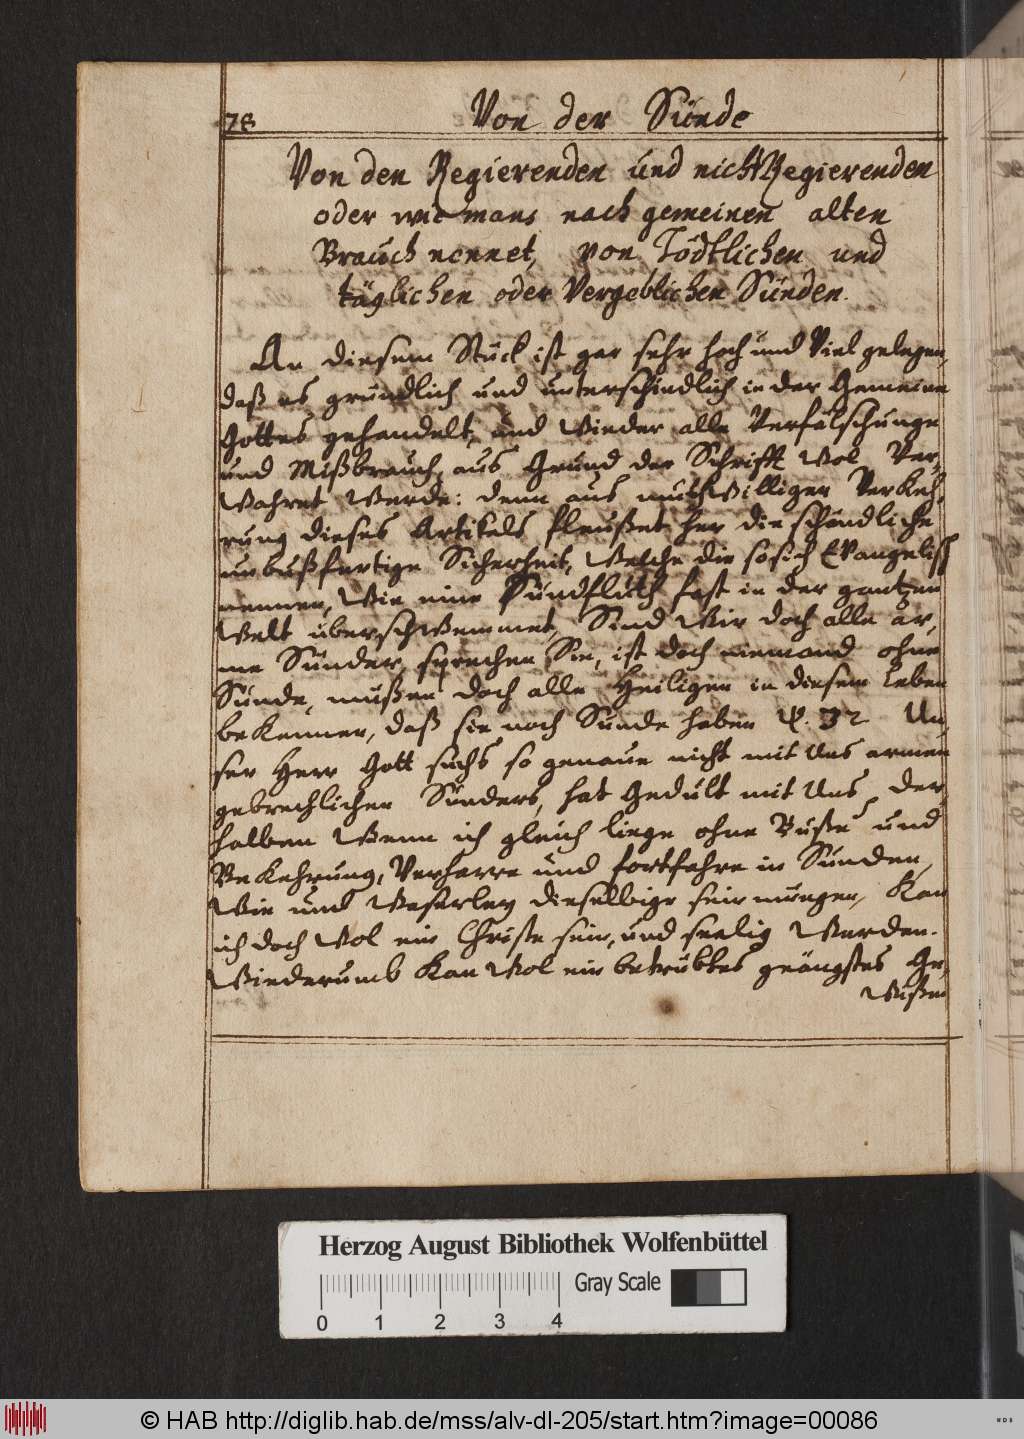 78
Von der Sünde
Von den Regierenden und nicht Regierenden
oder wie mans nach gemeinen alten
Brauch nennet, von Tödtlichen und
täglichen oder Vergeblichen Sünden.
An diesem Stück ist gar sehr hoch und Viel gelegen,
daß es gründlich und unterschiedlich in der Gemeine
Gottes gehandelt, und Wieder alle Verfälschunge
und Mißbrauch, aus Grund der Schrifft Wol Ver,
Wahret Werde: denn aus muthwilliger VerKeh,
rung dieses Artikels fleußet her die schändliche
unbußfertige Sicherheit, Welche die so sich Evangelisch
nennen, Wie eine Sündfluth fast in der gantzen
Welt überschwemmet, Sind Wir doch alle ar,
me Sünder, sprechen Sie, ist doch niemand ohne
Sünde, müßen doch alle Heiligen in diesem Leben
beKennen, daß sie noch Sünde haben ψ. 32 Un,
ser Herr Gott suchs so genaue nicht mit Uns armen
gebrechlichen Sünders, hat Gedult mit Uns, Der,
halben Wenn ich gleich liege ohne Buße und
BeKehrung, Verharre und fortfahre in Sünden,
Wie und Waserley dieselbige sein mögen, Kan
ich doch Wol ein Christe sein, und seelig Werden.
Wiederumb Kan Wol ein betrübtes geängstes Ge,
Wißen
Herzog August Bibliothek Wolfenbüttel
Gray Scale
0 1 2 3 4
© HAB http://diglib.hab.de/mss/alv-dl-205/start.htm?image=00086
WDB